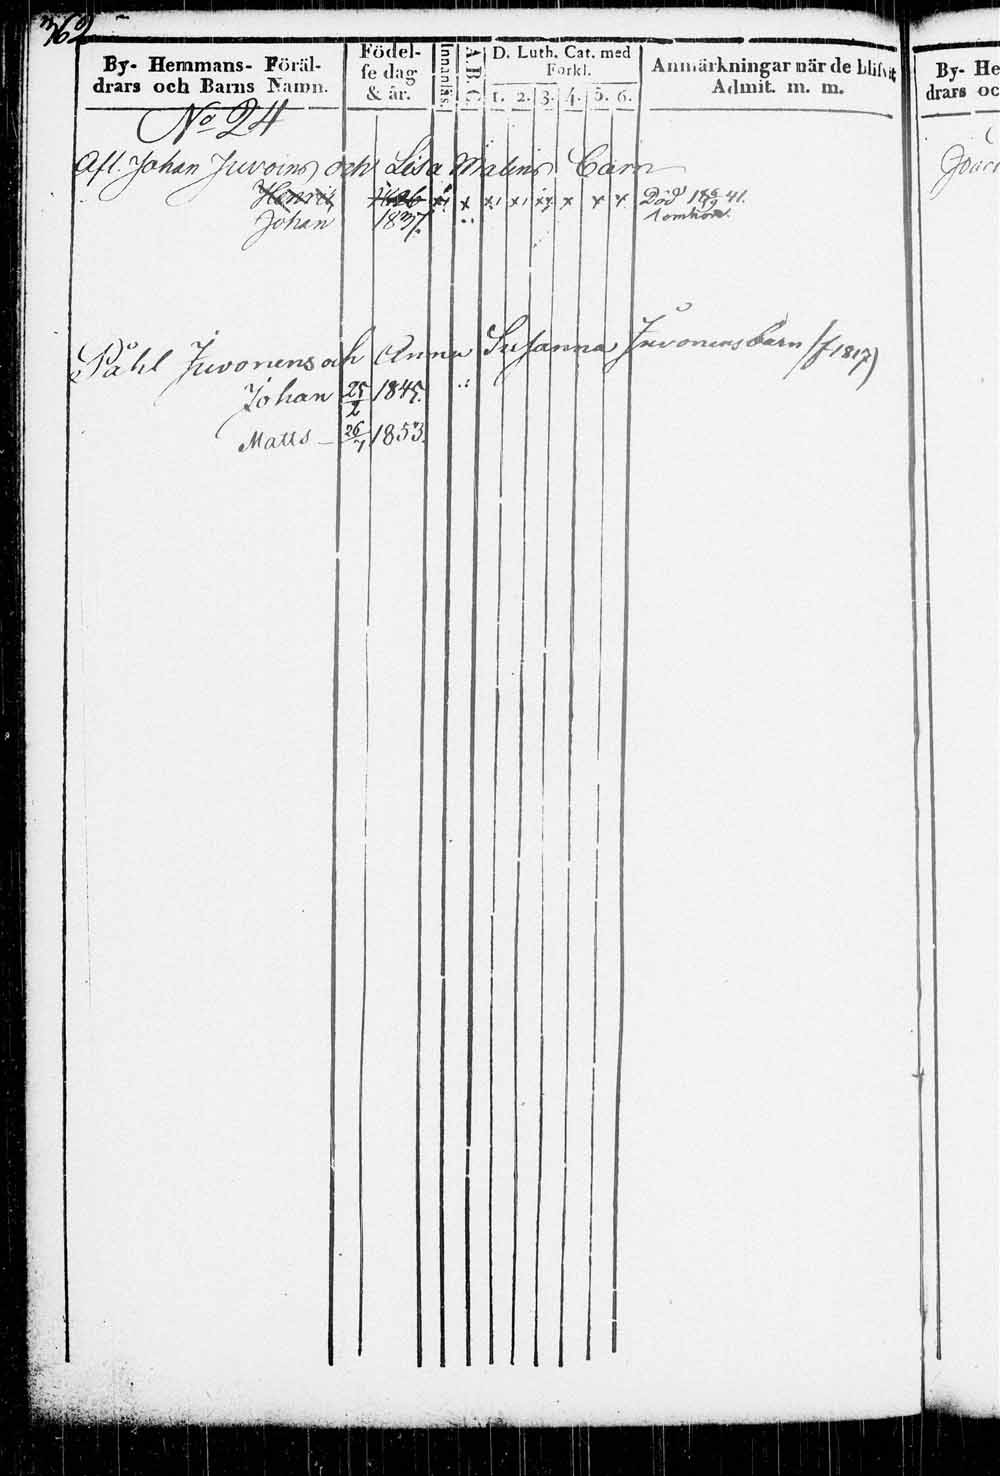 762
By- Hemmans- Föräl-
drars och Barns Namn.
Födel-
se dag
& år.
Innanläs.
A.B.C.
D. Luth. Cat. med
Forkl.
1. 2. 3. 4. 5. 6.
Anmärkningar när de blifvit
Admit. m. m.
No 24
Afl. Johan Juvoins och Lisa Malins Barn
Henric 1826 Död 41.
Johan 1837.
Påhl Juvonens och Anna Susanna Juvonens Barn (f 1817)
Johan 25/2 1845.
Matts 26/7 1853.
By- He
drars oc